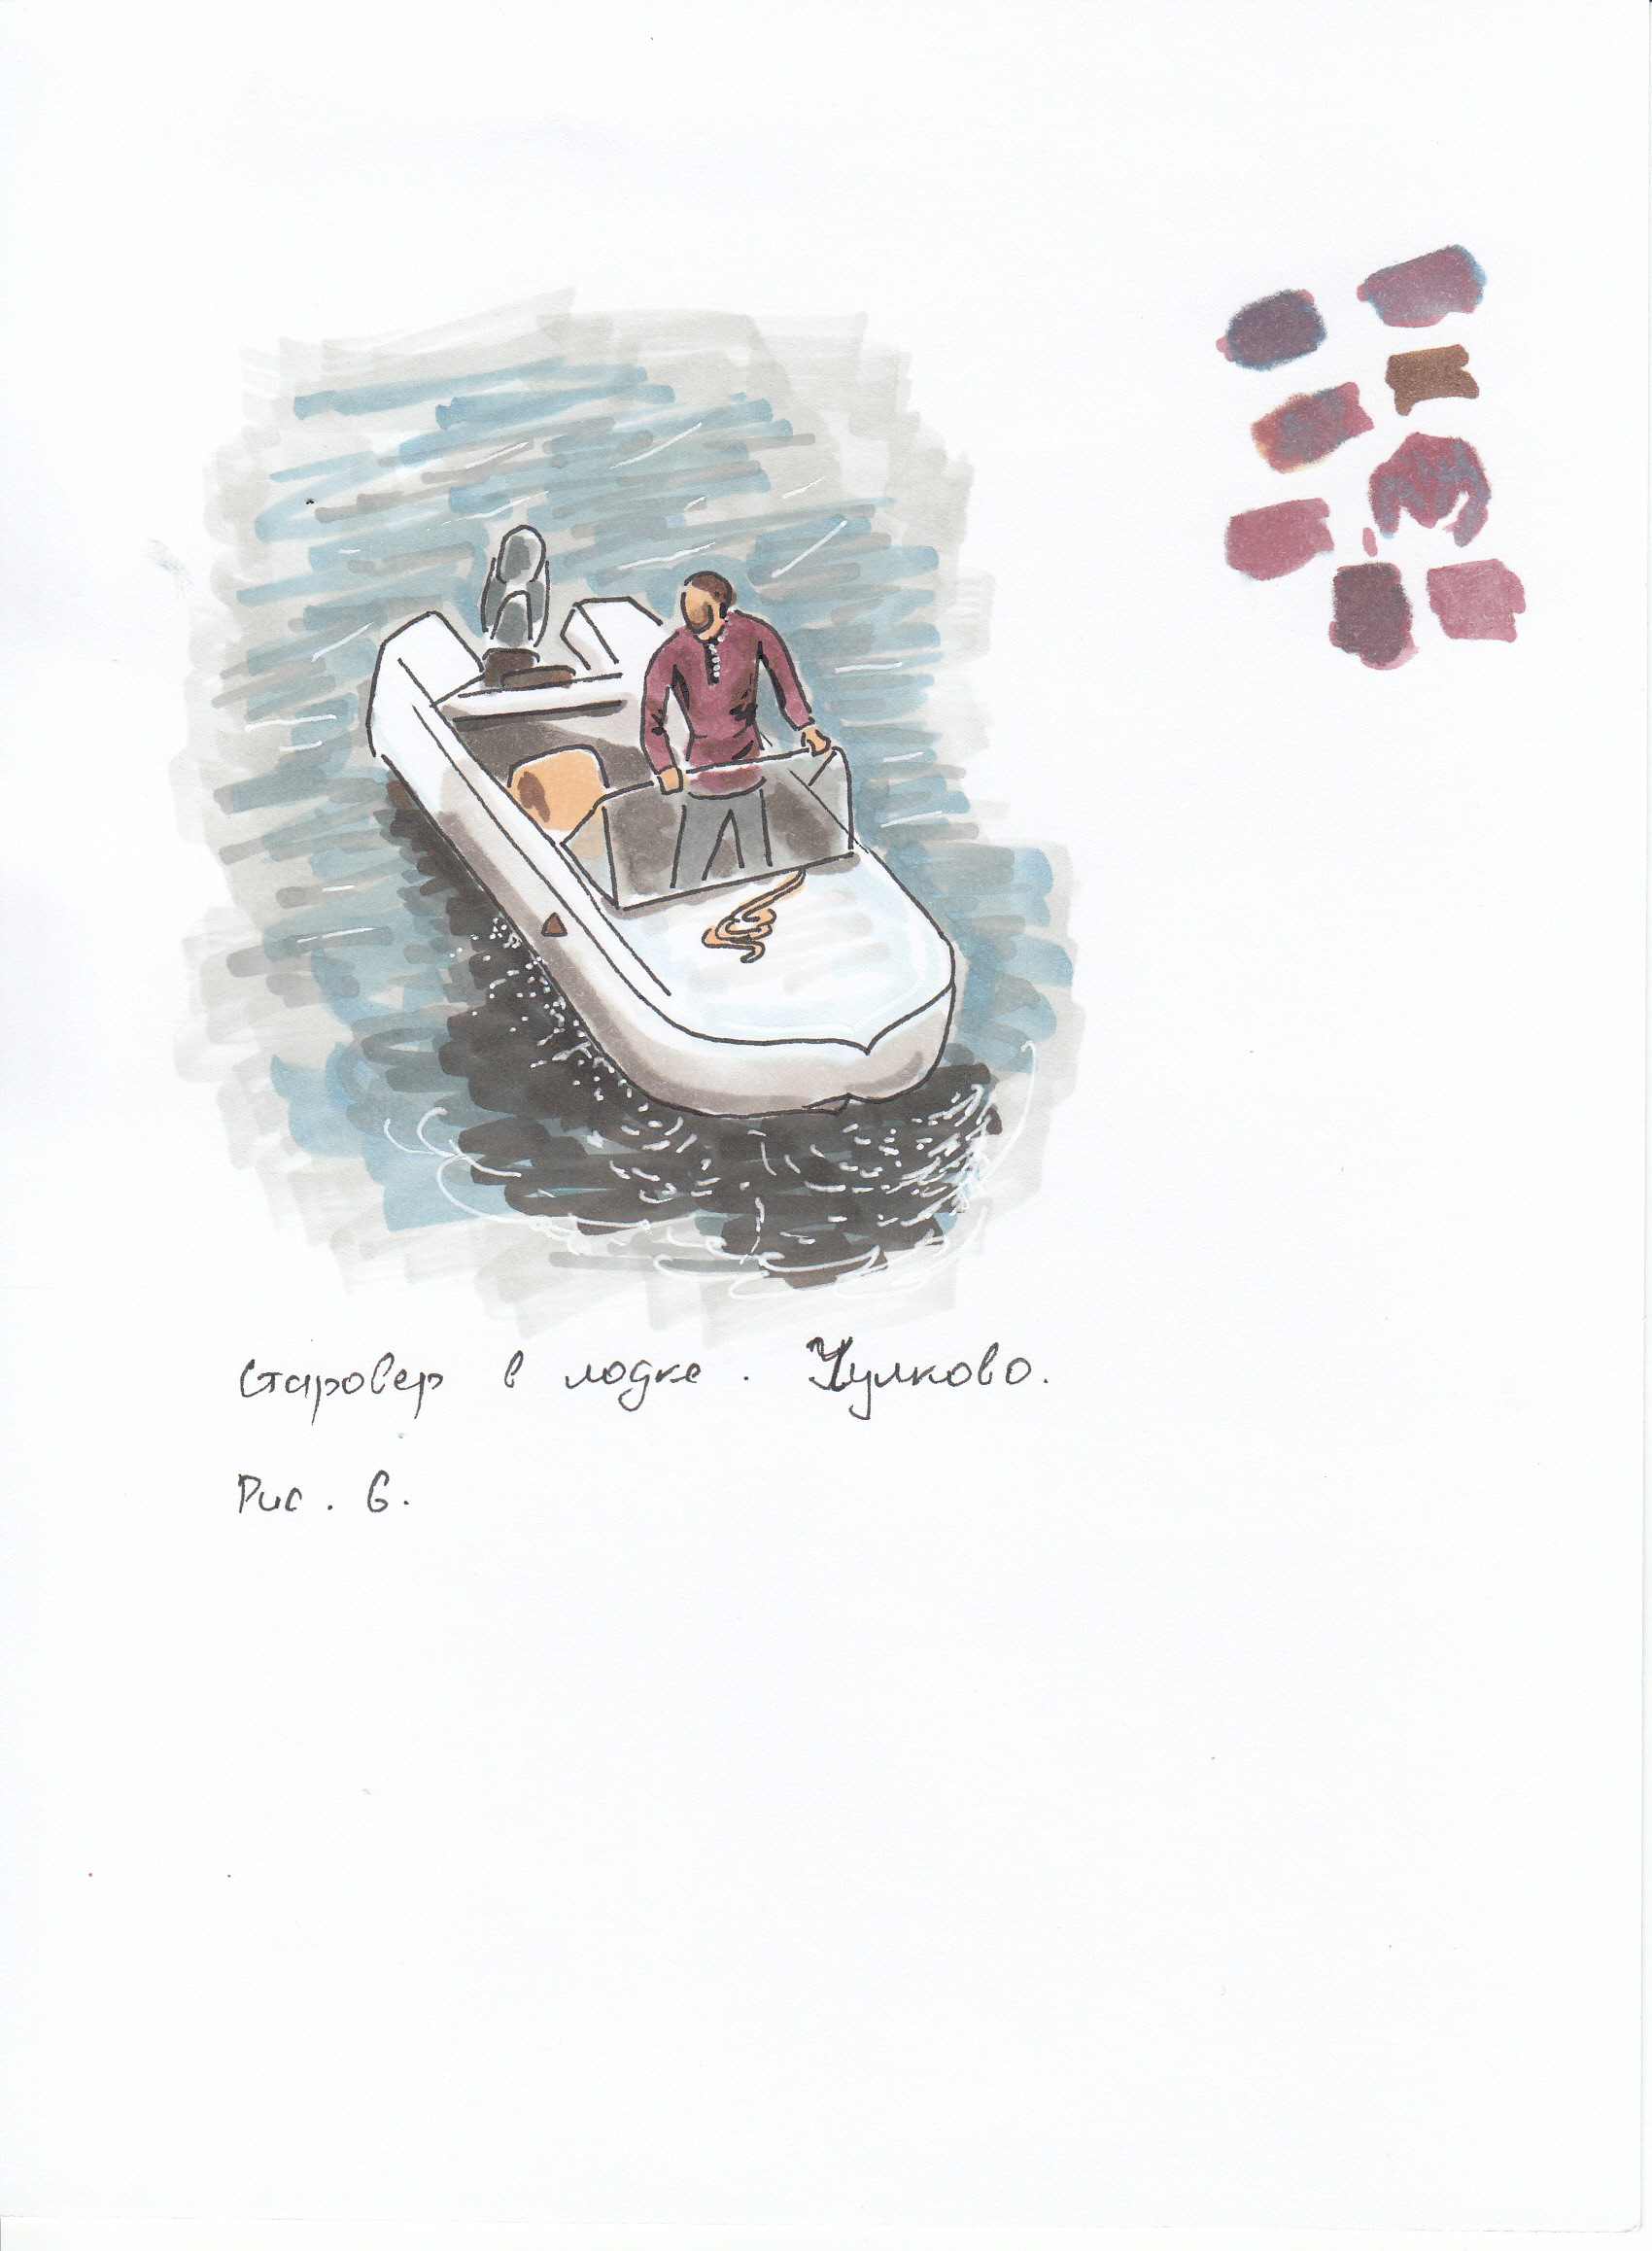 Старовер в лодке. Чулково.
Рис. 6.